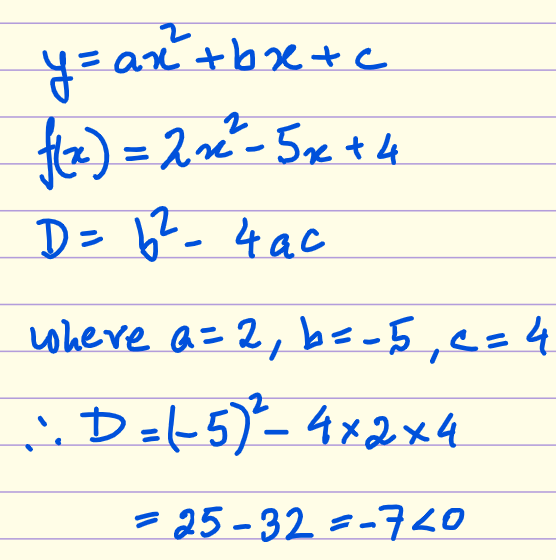 y = ax² + bx + c
f(x) = 2x² - 5x + 4
D = b² - 4ac
where a = 2, b = -5, c = 4
∴ D = (-5)² - 4 × 2 × 4
= 25 - 32 = -7 < 0